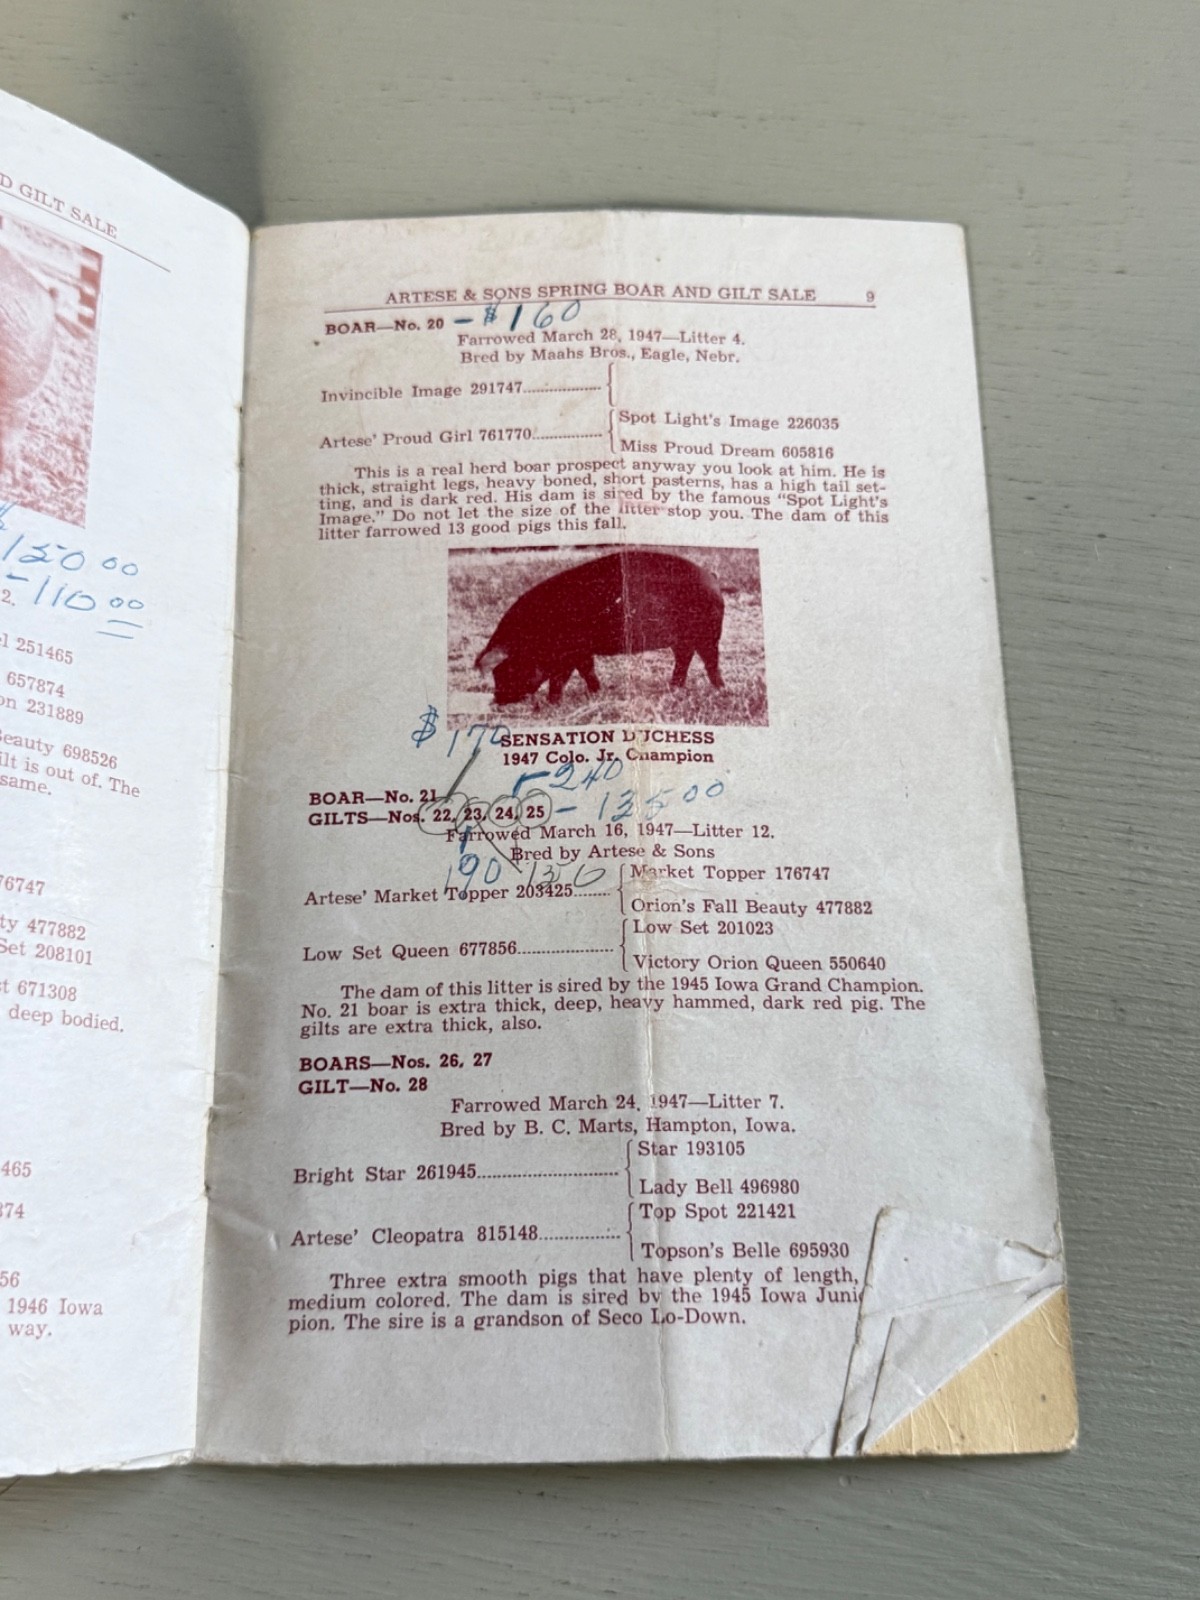 D GILT SALE
$
150 00
-110 00
2.
251465
657874
231889
698526
ilt is out of. The
same.
76747
ty 477882
Set 208101
671308
deep bodied.
465
874
56
1946 Iowa
way.
ARTESE & SONS SPRING BOAR AND GILT SALE 9
BOAR—No. 20 - $160
Farrowed March 28, 1947—Litter 4.
Bred by Maahs Bros., Eagle, Nebr.
Invincible Image 291747
Spot Light's Image 226035
Artese' Proud Girl 761770
Miss Proud Dream 605816
This is a real herd boar prospect anyway you look at him. He is
thick, straight legs, heavy boned, short pasterns, has a high tail set-
ting, and is dark red. His dam is sired by the famous "Spot Light's
Image." Do not let the size of the litter stop you. The dam of this
litter farrowed 13 good pigs this fall.
$170
SENSATION DUCHESS
1947 Colo. Jr. Champion
-240
BOAR—No. 21
GILTS—Nos. 22, 23, 24, 25 - 135 00
Farrowed March 16, 1947—Litter 12.
Bred by Artese & Sons
190 150
Market Topper 176747
Artese' Market Topper 203425
Orion's Fall Beauty 477882
Low Set 201023
Low Set Queen 677856
Victory Orion Queen 550640
The dam of this litter is sired by the 1945 Iowa Grand Champion.
No. 21 boar is extra thick, deep, heavy hammed, dark red pig. The
gilts are extra thick, also.
BOARS—Nos. 26, 27
GILT—No. 28
Farrowed March 24, 1947—Litter 7.
Bred by B. C. Marts, Hampton, Iowa.
Star 193105
Bright Star 261945
Lady Bell 496980
Top Spot 221421
Artese' Cleopatra 815148
Topson's Belle 695930
Three extra smooth pigs that have plenty of length,
medium colored. The dam is sired by the 1945 Iowa Juni
pion. The sire is a grandson of Seco Lo-Down.